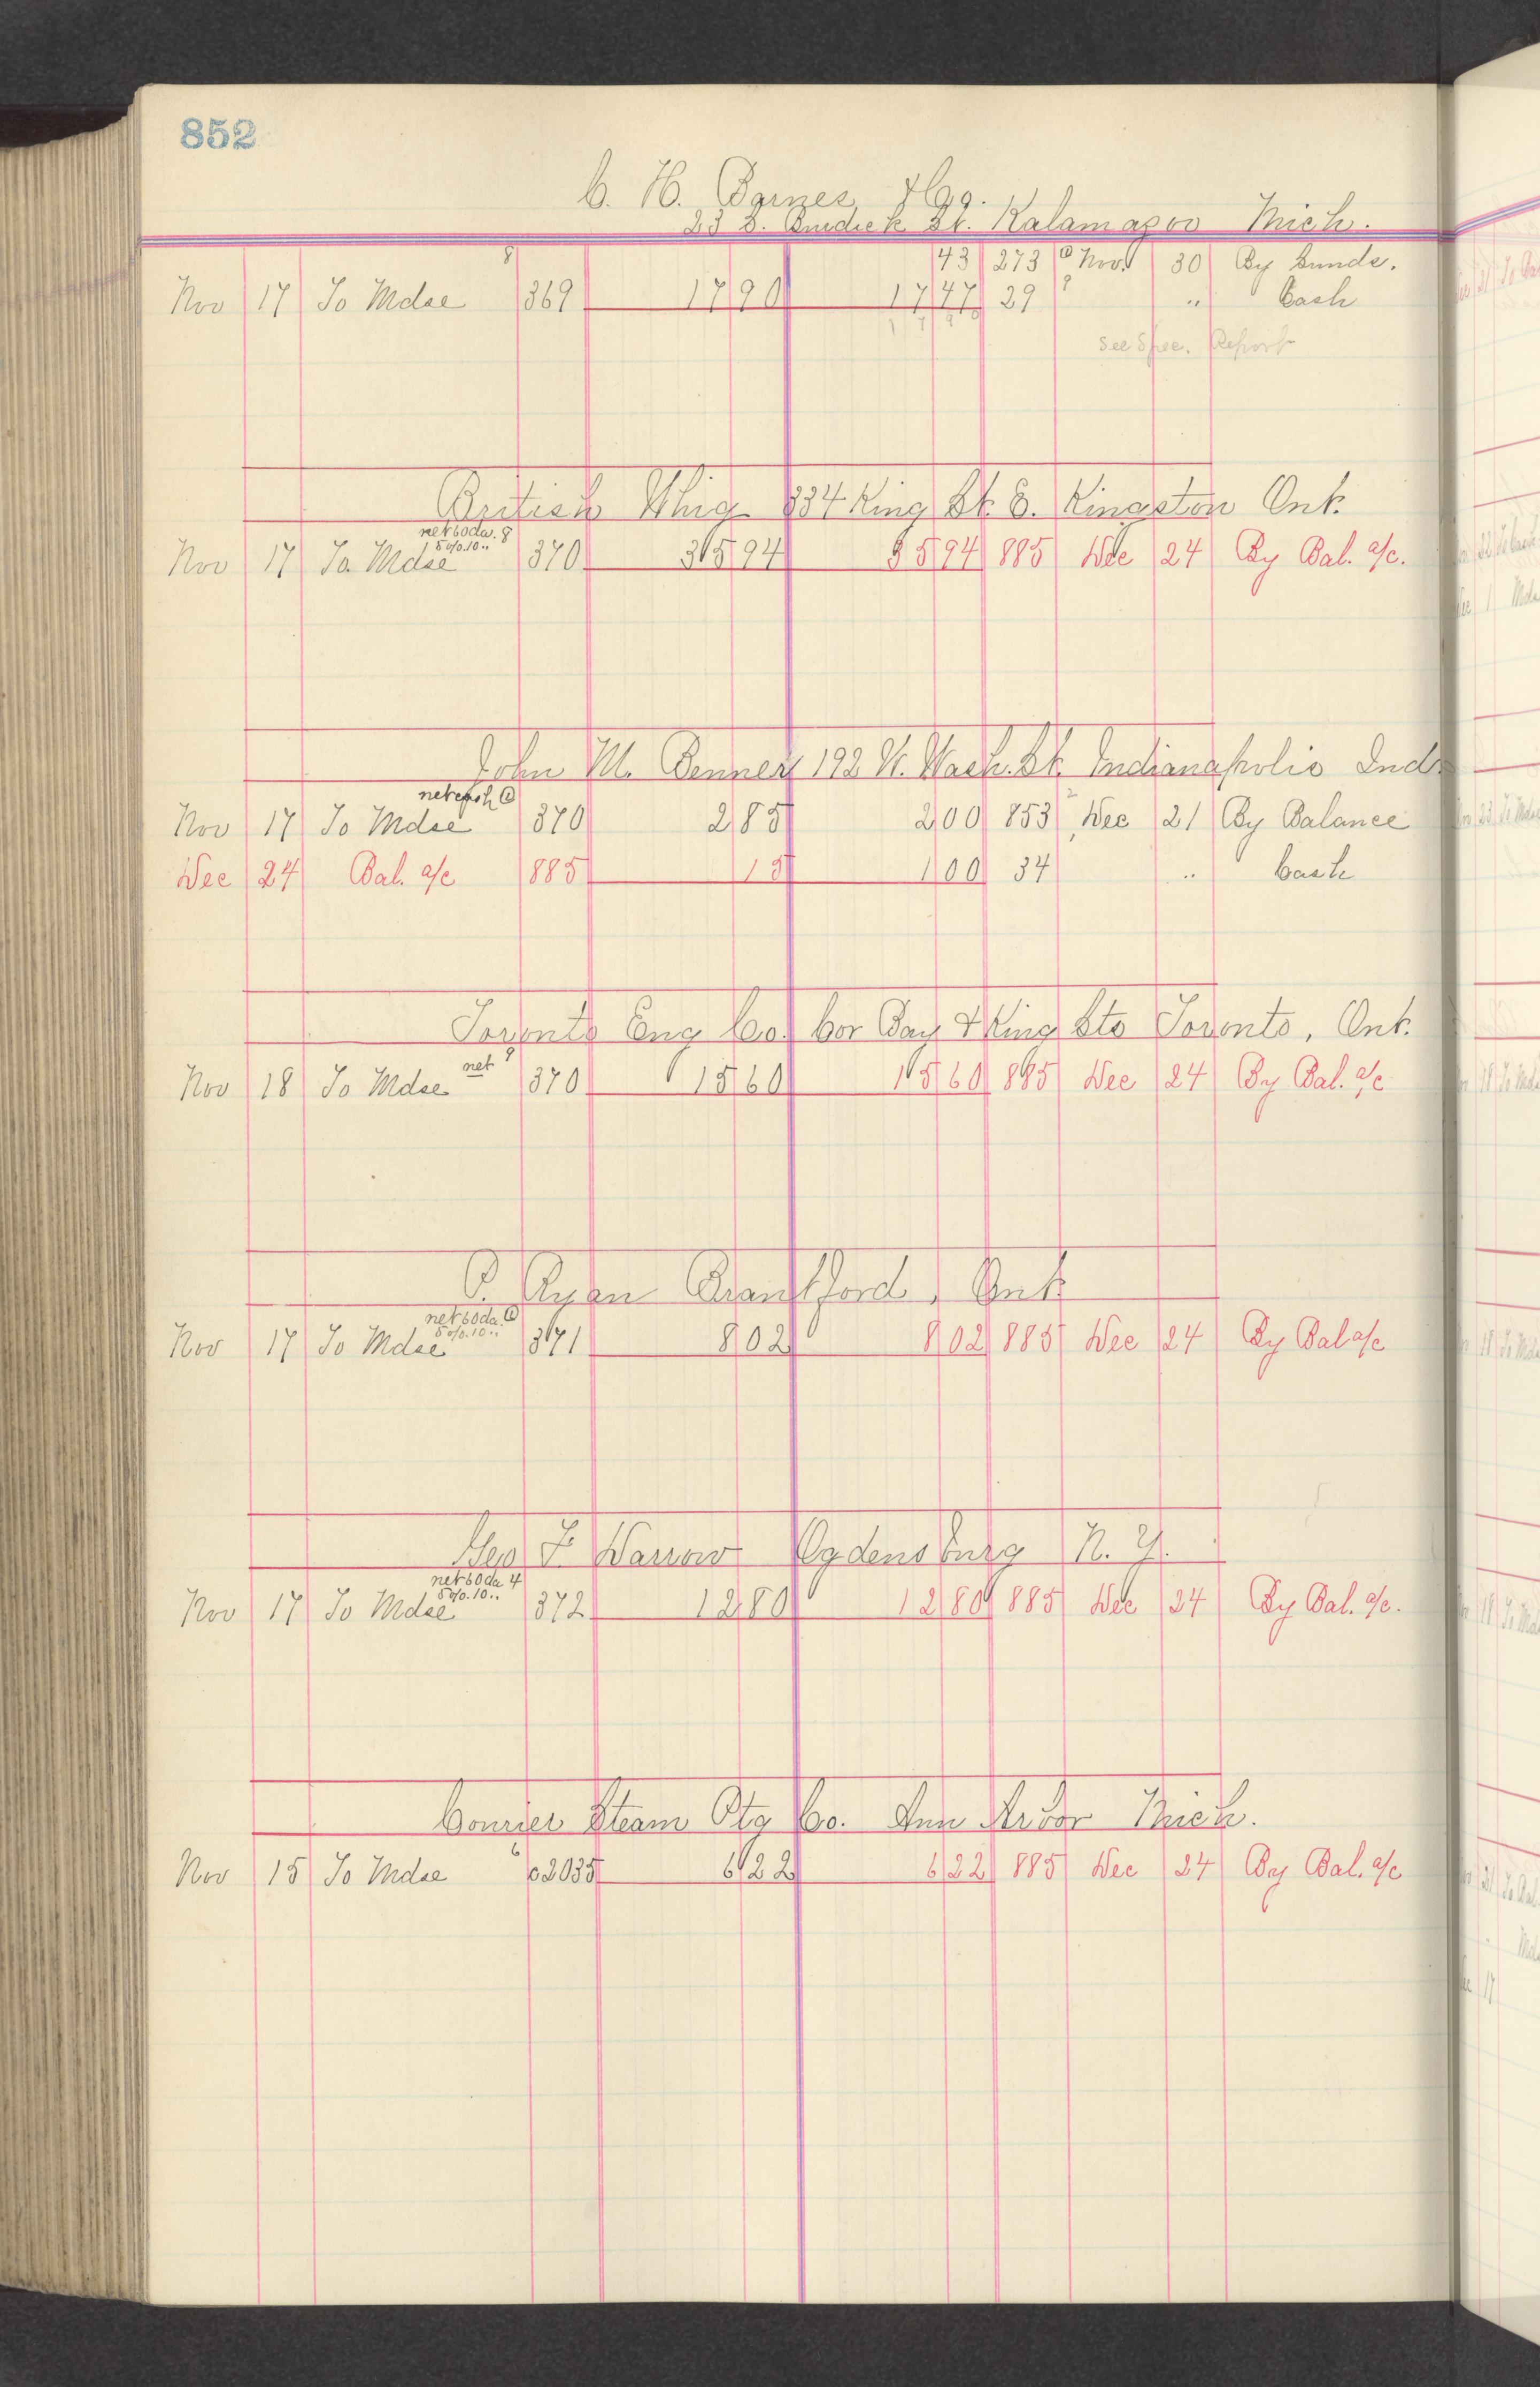 852
C. H. Barnes & Co.
23 S. Burdick St. Kalamazoo Mich.
8 43 273 @ Nov. 30 By Sunds.
Nov 17 To Mdse 369 17 90 17 47 29 8 " Cash
17 90
See Spec. Report
British Whig 334 King St. E. Kingston Ont.
net 60 da. 8
5% 10 "
Nov 17 To Mdse 370 35 94 35 94 885 Dec 24 By Bal. a/c.
John M. Benner 192 W. Wash. St. Indianapolis Ind.
net cash @
Nov 17 To Mdse 370 2 85 2 00 853 Dec 21 By Balance
Dec 24 Bal. a/c 885 15 1 00 34 " Cash
Toronto Eng Co. Cor Bay & King Sts Toronto, Ont.
net 9
Nov 18 To Mdse 370 15 60 15 60 885 Dec 24 By Bal. a/c
P. Ryan Brantford, Ont.
net 60 da. @
5% 10 "
Nov 17 To Mdse 371 8 02 8 02 885 Dec 24 By Bal a/c
Geo F Darrow Ogdensburg N. Y.
net 60 da 4
5% 10 "
Nov 17 To Mdse 372 12 80 12 80 885 Dec 24 By Bal. a/c.
Courier Steam Ptg Co. Ann Arbor Mich.
6
Nov 15 To Mdse c2035 6 22 6 22 885 Dec 24 By Bal. a/c